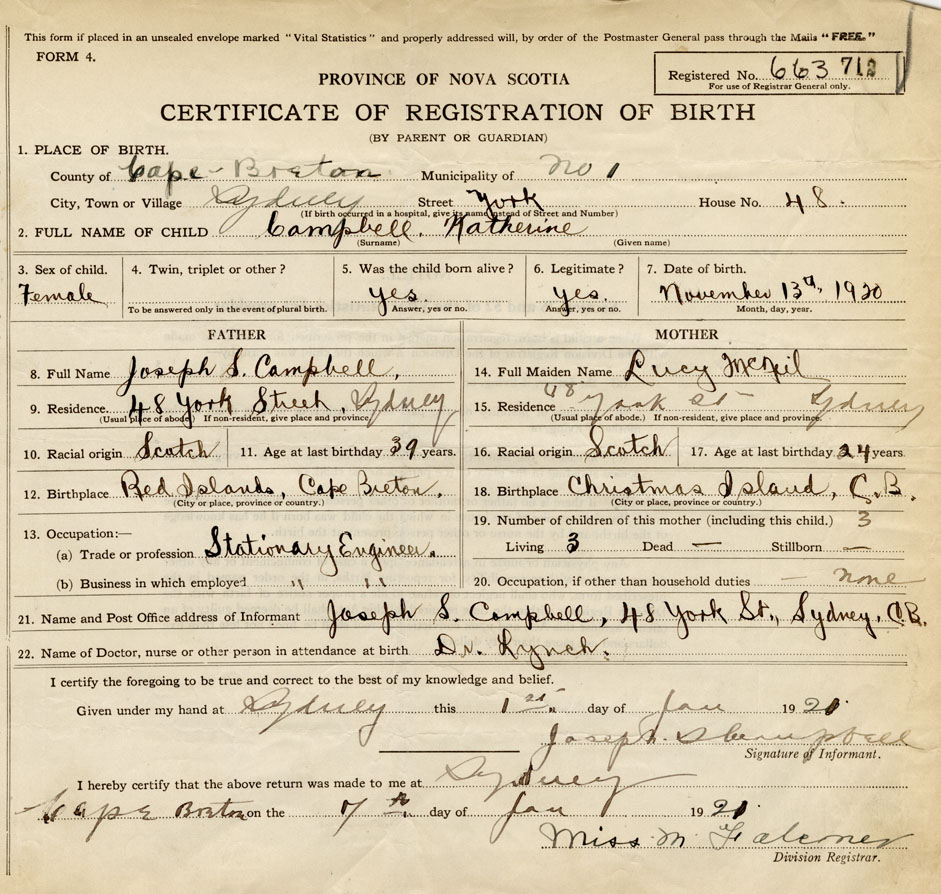 This form if placed in an unsealed envelope marked "Vital Statistics" and properly addressed will, by order of the Postmaster General pass through the Mails "FREE."
FORM 4.
Registered No. 663 713
For use of Registrar General only.
PROVINCE OF NOVA SCOTIA
CERTIFICATE OF REGISTRATION OF BIRTH
(BY PARENT OR GUARDIAN)
1. PLACE OF BIRTH.
County of Cape Breton Municipality of No 1
City, Town or Village Sydney Street York House No. 48.
(If birth occurred in a hospital, give its name instead of Street and Number)
2. FULL NAME OF CHILD Campbell, Katherine
(Surname) (Given name)
3. Sex of child. 4. Twin, triplet or other? 5. Was the child born alive? 6. Legitimate? 7. Date of birth.
Female yes. Yes. November 13th, 1920
To be answered only in the event of plural birth. Answer, yes or no. Answer, yes or no. Month, day, year.
FATHER MOTHER
8. Full Name Joseph S. Campbell, 14. Full Maiden Name Lucy McNeil
9. Residence. 48 York Street, Sydney 15. Residence 48 York St Sydney
(Usual place of abode.) If non-resident, give place and province. (Usual place of abode.) If non-resident, give place and province.
10. Racial origin Scotch 11. Age at last birthday 39 years. 16. Racial origin Scotch 17. Age at last birthday 24 years.
12. Birthplace Red Islands, Cape Breton. 18. Birthplace Christmas Island, C.B.
(City or place, province or country.) (City or place, province or country.)
13. Occupation:— 19. Number of children of this mother (including this child.) 3
(a) Trade or profession Stationary Engineer. Living 3 Dead — Stillborn —
(b) Business in which employed " " 20. Occupation, if other than household duties — none
21. Name and Post Office address of Informant Joseph S. Campbell, 48 York St., Sydney, C.B.
22. Name of Doctor, nurse or other person in attendance at birth Dr. Lynch.
I certify the foregoing to be true and correct to the best of my knowledge and belief.
Given under my hand at Sydney this 1st day of Jan 1921
Joseph S Campbell
Signature of Informant.
I hereby certify that the above return was made to me at Sydney
Cape Breton on the 7th day of Jan 1921
Miss M Falconer
Division Registrar.